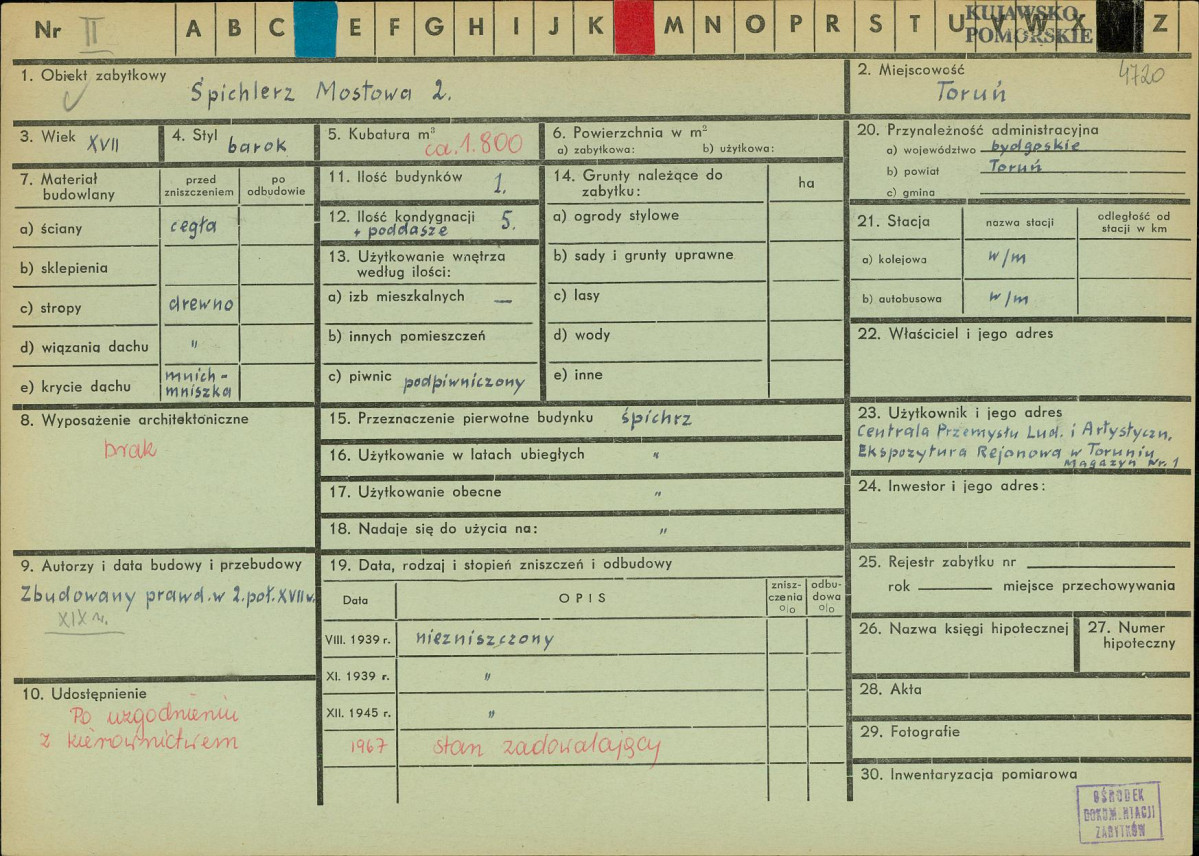 Nr II A B C E F G H I J K M N O P R S T U V W X Z
KUJAWSKO
POMORSKIE
1. Obiekt zabytkowy
Śpichlerz Mostowa 2.
2. Miejscowość 4720
Toruń
3. Wiek XVII
4. Styl barok
5. Kubatura m³ ca. 1.800
6. Powierzchnia w m²
a) zabytkowa: b) użytkowa:
20. Przynależność administracyjna
a) województwo bydgoskie
b) powiat Toruń
c) gmina
7. Materiał budowlany
przed zniszczeniem
po odbudowie
a) ściany cegła
b) sklepienia
c) stropy drewno
d) wiązania dachu "
e) krycie dachu mnich-
mniszka
11. Ilość budynków 1.
12. Ilość kondygnacji 5.
+ poddasze
13. Użytkowanie wnętrza
według ilości:
a) izb mieszkalnych —
b) innych pomieszczeń
c) piwnic podpiwniczony
14. Grunty należące do
zabytku:
ha
a) ogrody stylowe
b) sady i grunty uprawne
c) lasy
d) wody
e) inne
21. Stacja
nazwa stacji
odległość od
stacji w km
a) kolejowa w/m
b) autobusowa w/m
22. Właściciel i jego adres
8. Wyposażenie architektoniczne
brak
15. Przeznaczenie pierwotne budynku śpichrz
16. Użytkowanie w latach ubiegłych "
17. Użytkowanie obecne "
18. Nadaje się do użycia na: "
23. Użytkownik i jego adres
Centrala Przemysłu Lud. i Artystyczn.
Ekspozytura Rejonowa w Toruniu
Magazyn Nr. 1
24. Inwestor i jego adres:
9. Autorzy i data budowy i przebudowy
Zbudowany prawd. w 2. poł. XVII w.
XIX w.
19. Data, rodzaj i stopień zniszczeń i odbudowy
Data
OPIS
znisz-
czenia
o|o
odbu-
dowa
o|o
VIII. 1939 r. niezniszczony
XI. 1939 r. "
XII. 1945 r. "
1967 stan zadowalający
25. Rejestr zabytku nr
rok miejsce przechowywania
26. Nazwa księgi hipotecznej
27. Numer
hipoteczny
10. Udostępnienie
Po uzgodnieniu
z kierownictwem
28. Akta
29. Fotografie
30. Inwentaryzacja pomiarowa
OŚRODEK
DOKUMENTACJI
ZABYTKÓW